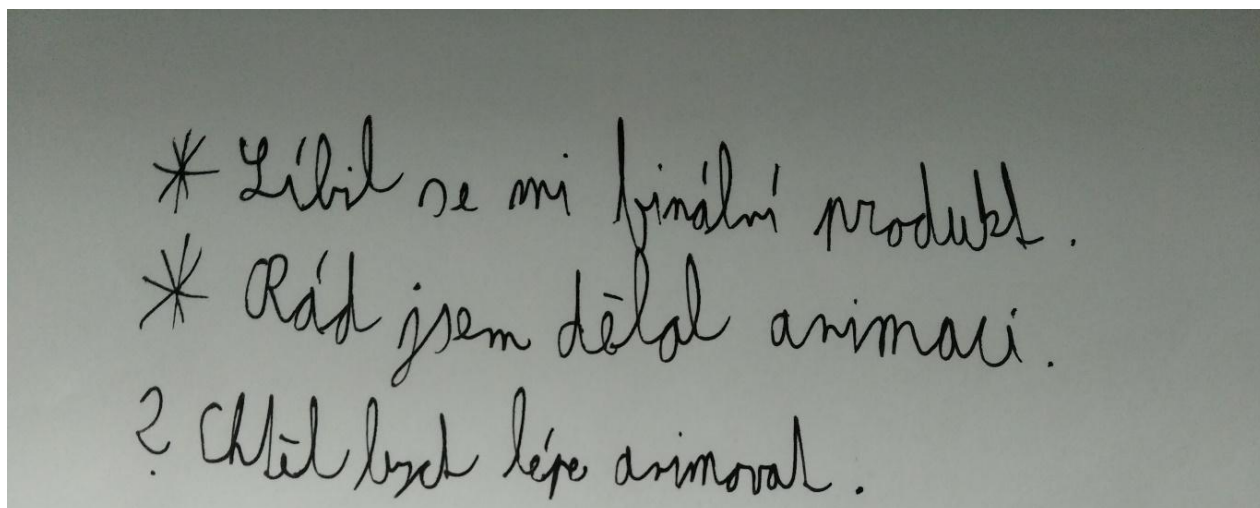 * Líbil se mi finální produkt.
* Rád jsem dělal animaci.
? Chtěl bych lépe animovat.